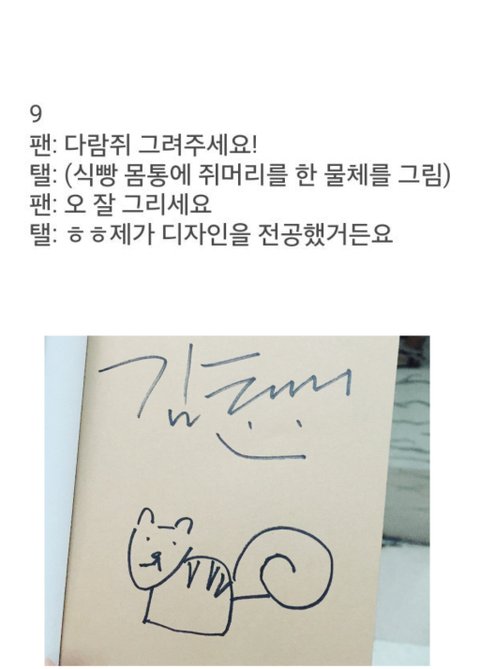 9
팬: 다람쥐 그려주세요!
탤: (식빵 몸통에 쥐머리를 한 물체를 그림)
팬: 오 잘 그리세요
탤: ㅎㅎ제가 디자인을 전공했거든요
김